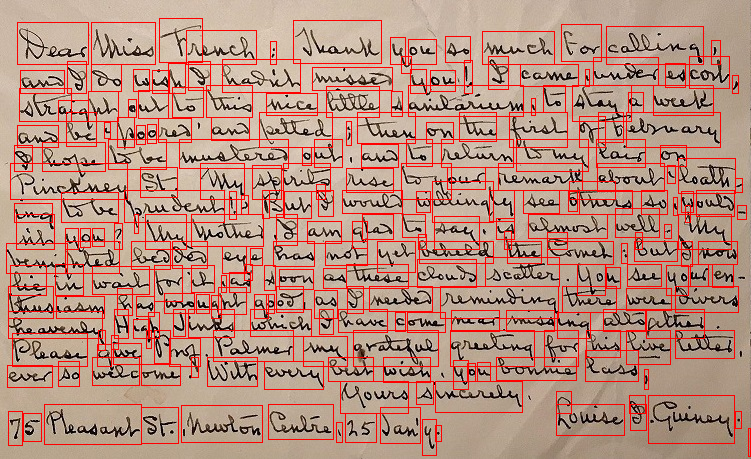 Dear Miss French: Thank you so much for calling,
and I do wish I hadn't missed you! I came, under escort,
straight out to this nice little sanitarium, to stay a week
and be 'poored' and petted; then on the first of February
I hope to be mustered out, and to return to my lair on
Pinckney St. My spirits rise to your remark about loath-
ing to be prudent! But I would willingly see others so; would-
n't you? My Mother I am glad to say, is almost well. My
benighted bedded eye has not yet beheld the Comet: but I now
lie in wait for it, as soon as these clouds scatter. You see your en-
thusiasm has wrought good, as I needed reminding there were divers
heavenly High Jinks which I have come near missing altogether.
Please give Prof. Palmer my grateful greeting for his live letter,
ever so welcome. With every best wish, you bonnie lass,
Yours sincerely,
Louise I. Guiney.
75 Pleasant St., Newton Centre, 25 Jan'y.